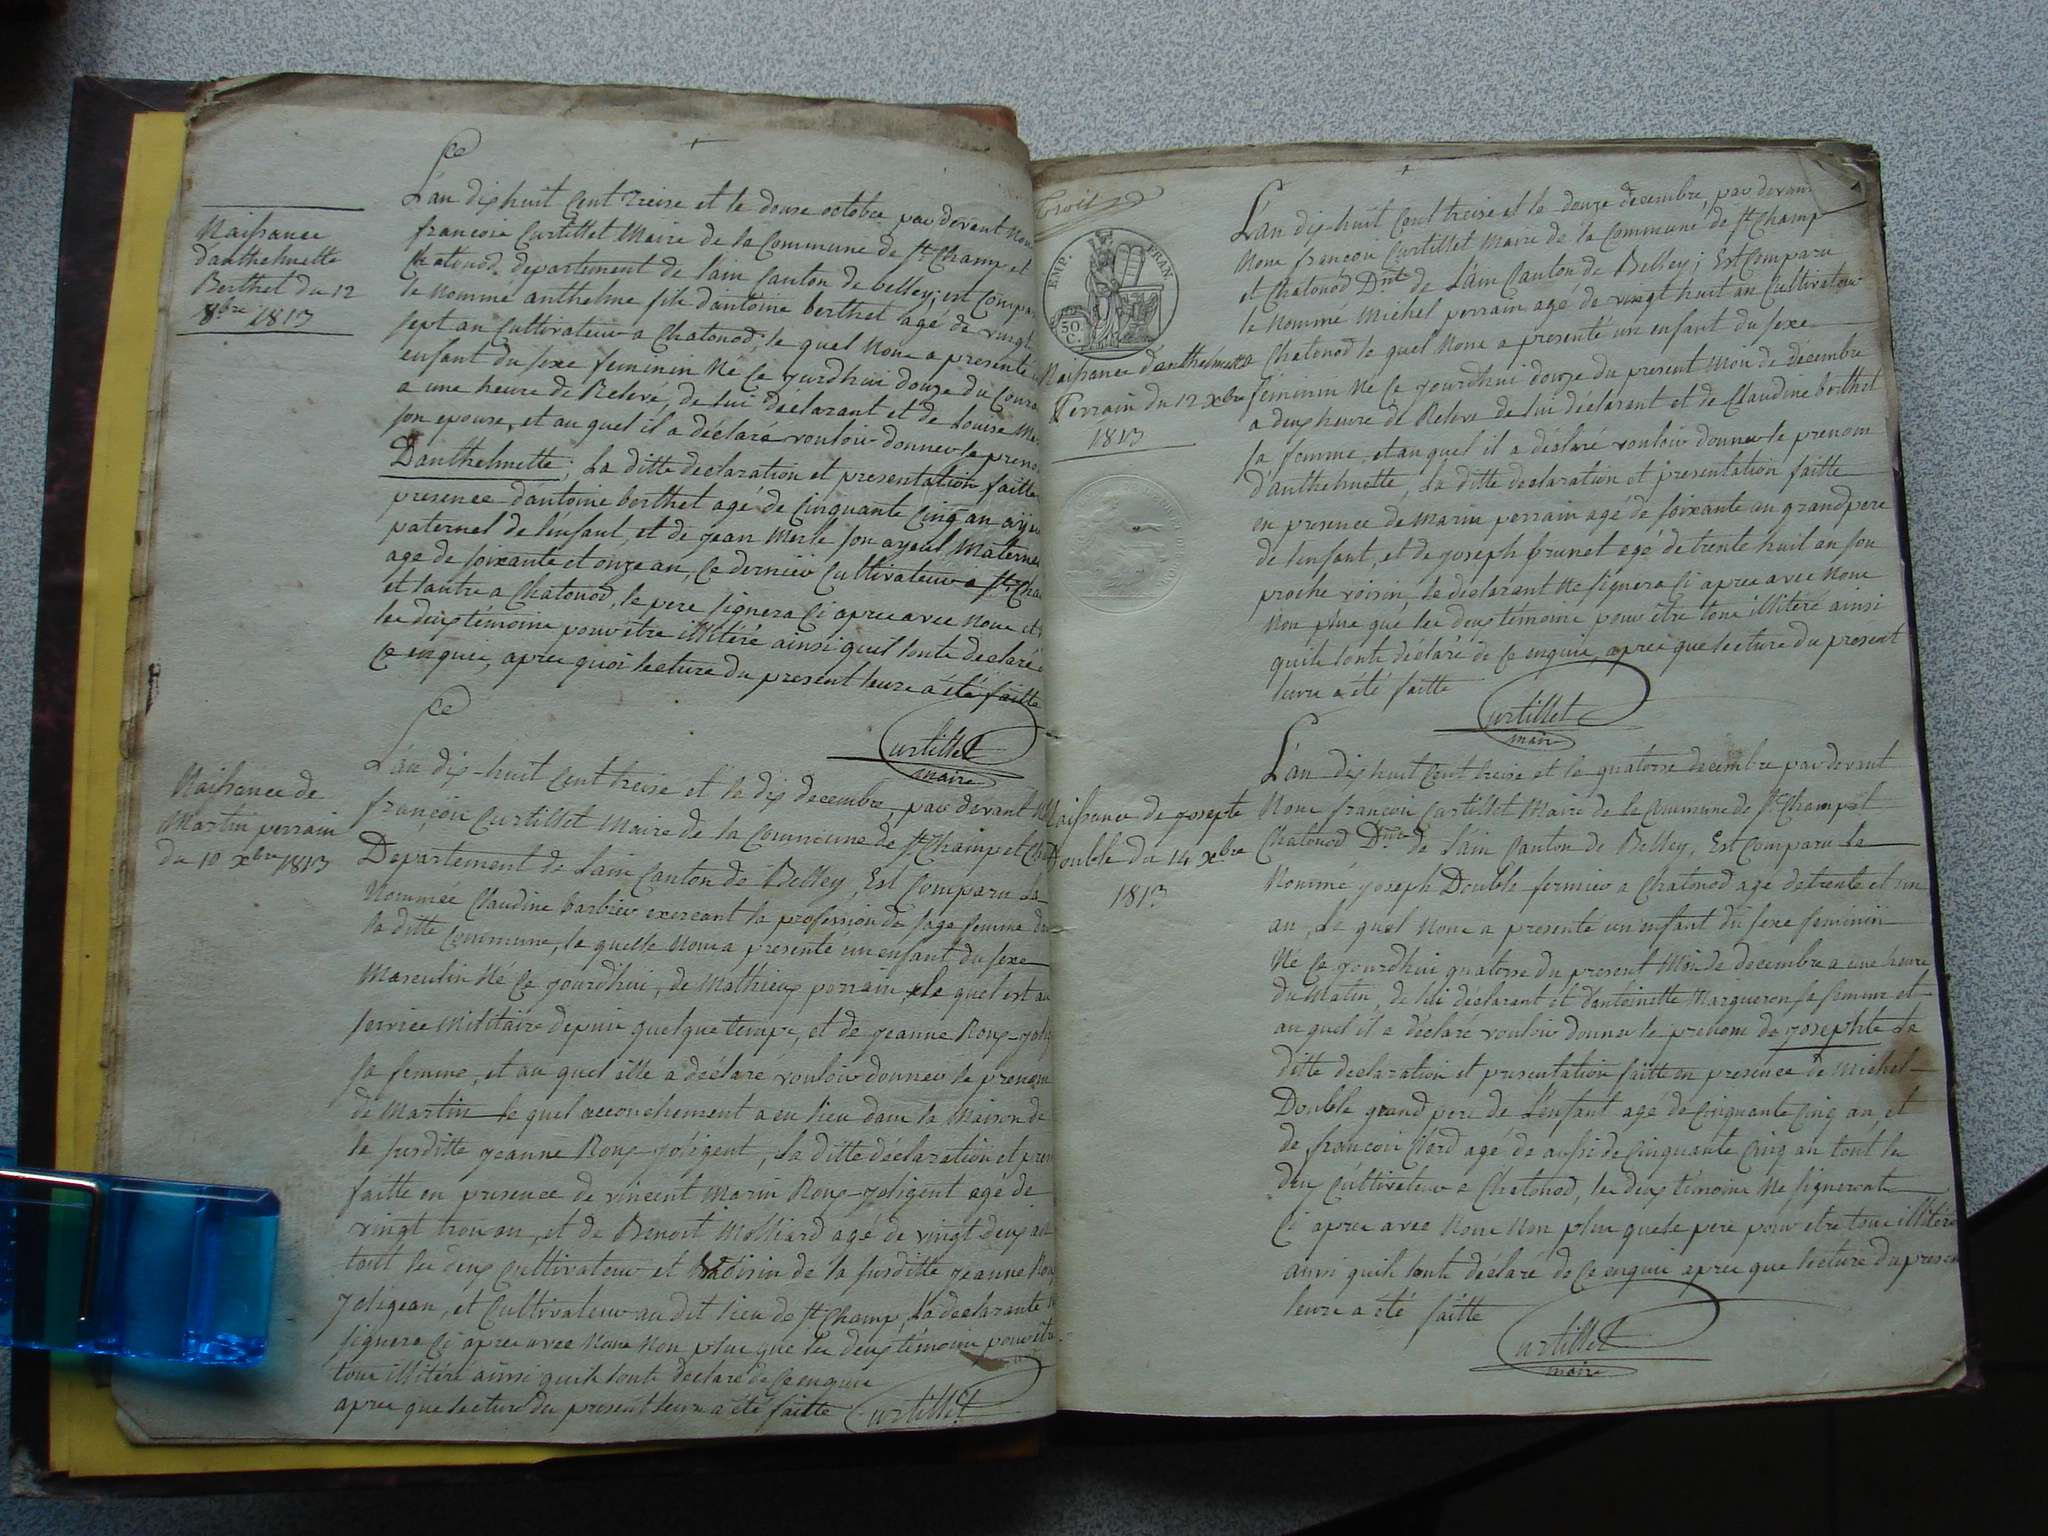 Naissance
danthelmette
Berthet du 12
8bre 1813
L'an dix huit Cent treise et le douse octobre par devant Nous
françois Curtillet Maire de la Commune de St Champ et
Chatonod departement de l'ain Canton de belley, est Compa
le Nommé anthelme fils d'antoine berthet agé de vingt
sept an Cultivateur a Chatonod, le quel Nous a presenté
enfant du sexe feminin Né Ce jourdhui douze du Coura
a une heure de Relevé, de lui declarant et de Louise Me
son epouse, et au quel il a déclaré vouloir donner le preno
Danthelmette; La ditte declaration et presentation faitte
presence d'antoine berthet agé de Cinquante Cinq an ayeu
paternel de lenfant, et de jean Merle son ayeul Materne
age de soixante et onze an, Ce dernier Cultivateur a St Cha
et lautre a Chatonod, le pere signera Ci apres avec Nous et
les deux témoins pour être illitéré ainsi quil sont declaré
Ce enquis, apres quoi lecture du present leure a été faitte
Curtillet
maire
Naissance de
Martin perrain
du 10 xbre 1813
L'an dix-huit Cent treise et le dix decembre, par devant
françois Curtillet Maire de la Commune de St Champ et Cha
Departement de Lain Canton de Belley, Est Comparu La
Nommée Claudine barbier exercant la profession de sage femme
la ditte Commune, le quelle Nous a presente un enfant du sexe
Masculin Né Ce jourdhui, de Mathieux perrain, le quel est au
service Militaire depuis quelque temps, et de jeanne Roux-joli
sa femme, et au quel elle a déclaré vouloir donner le prenom
de Martin le quel accouchement a eu lieu dans la Maison de
la susditte jeanne Roux-joligent, La ditte déclaration et pres
faitte en presence de vincent Marin Roux-joligent agé de
vingt trois an, et de Benoit Molliard agé de vingt deux an
tout les deux Cultivateur et voisin de la susditte jeanne Roux
joligean, et Cultivateur au dit lieu de St Champ, La declarante
signera Ci apres avec Nous Non plus que les deux témoins pour être
tous illitéré ainsi quil sont declaré de Ce enquis
apres que lecture du present leure a été faitte Curtillet
Troit
EMP. FRAN.
50.
C.
Naissance d'anthelmette
Perrain du 12 xbre
1813
L'an dix-huit Cent treise et le douze decembre, par devant
Nous françois Curtillet Maire de la Commune de St Champ
et Chatonod Dmt de L'ain Canton de Belley; Est Comparu
le Nommé Michel perrain agé de vingt huit an Cultivateur
a Chatonod le quel Nous a presenté un enfant du sexe
feminin Né Ce jourdhui douze du present Mois de decembre
a deux heure de Relevé de lui déclarant et de Claudine berthet
sa femme, et au quel il a déclaré vouloir donner le prenom
d'anthelmette, La ditte déclaration et presentation faitte
en presence de Marin perrain agé de soixante an grandpere
de lenfant, et de joseph brunet agé de trente huit an son
proche voisin, Le declarant Ne signera Ci apres avec Nous
Non plus que les deux témoins pour être tous illitéré ainsi
quils sont déclaré de Ce enquis, apres que lecture du présent
leure a été faitte
Curtillet
maire
Naissance de josepte
Double du 14 xbre
1813
L'an dix huit Cent treise et le quatorse decembre par devant
Nous françois Curtillet Maire de la Commune de St Champ et
Chatonod Dmt de L'ain Canton de Belley, Est Comparu Le
Nommé joseph Double fermier a Chatonod agé de trente et un
an, Le quel Nous a presenté un enfant du sexe feminin
Né Ce jourdhui quatorse du present Mois de decembre a une heure
du Matin, de lui déclarant et d'antoinette Margueron sa femme et
au quel il a déclaré vouloir donner le prenom de josephte La
ditte declaration et presentation faitte en presence de Michel
Double grand pere de L'enfant agé de Cinquante Cinq an, et
de françois Clerd agé de aussi de Cinquante Cinq an tout les
deux Cultivateur a Chatonod, les deux témoins Ne signeront
Ci apres avec Nous Non plus que le pere pour etre tous illitéré
ainsi quils sont déclaré de Ce enquis apres que lecture du presen
leure a été faitte
Curtillet
maire